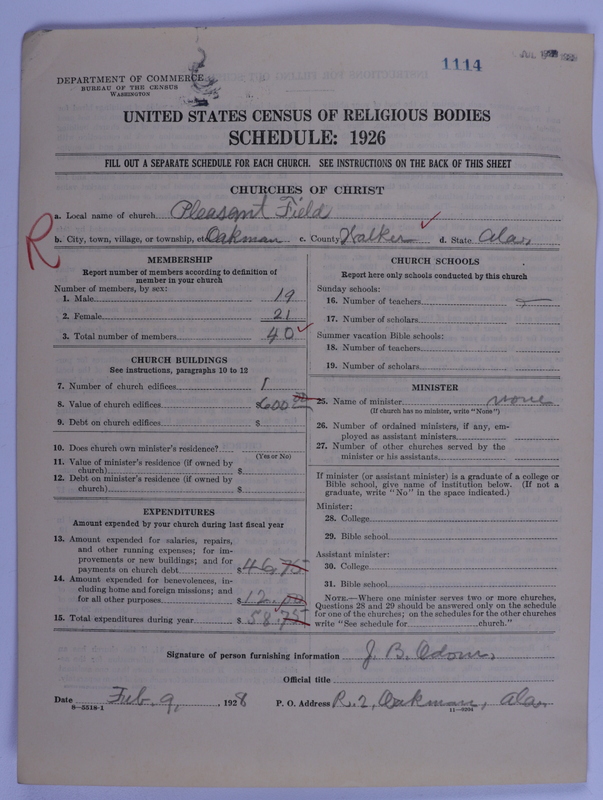 1114
DEPARTMENT OF COMMERCE
BUREAU OF THE CENSUS
WASHINGTON
UNITED STATES CENSUS OF RELIGIOUS BODIES
SCHEDULE: 1926
FILL OUT A SEPARATE SCHEDULE FOR EACH CHURCH. SEE INSTRUCTIONS ON THE BACK OF THIS SHEET
CHURCHES OF CHRIST
a. Local name of church Pleasant Field
R
b. City, town, village, or township, etc. Oakman c. County Walker d. State Ala.
MEMBERSHIP
Report number of members according to definition of
member in your church
Number of members, by sex:
1. Male 19
2. Female 21
3. Total number of members 40
CHURCH BUILDINGS
See instructions, paragraphs 10 to 12
7. Number of church edifices 1
8. Value of church edifices $600 00
9. Debt on church edifices $
10. Does church own minister's residence?
(Yes or No)
11. Value of minister's residence (if owned by
church) $
12. Debt on minister's residence (if owned by
church) $
EXPENDITURES
Amount expended by your church during last fiscal year
13. Amount expended for salaries, repairs,
and other running expenses; for im-
provements or new buildings; and for
payments on church debt $46.75
14. Amount expended for benevolences, in-
cluding home and foreign missions; and
for all other purposes $12.00
15. Total expenditures during year $58.75
CHURCH SCHOOLS
Report here only schools conducted by this church
Sunday schools:
16. Number of teachers
17. Number of scholars
Summer vacation Bible schools:
18. Number of teachers
19. Number of scholars
MINISTER
25. Name of minister none
(If church has no minister, write "None")
26. Number of ordained ministers, if any, em-
ployed as assistant ministers
27. Number of other churches served by the
minister or his assistants
If minister (or assistant minister) is a graduate of a college or
Bible school, give name of institution below. (If not a
graduate, write "No" in the space indicated.)
Minister:
28. College
29. Bible school
Assistant minister:
30. College
31. Bible school
NOTE.—Where one minister serves two or more churches,
Questions 28 and 29 should be answered only on the schedule
for one of the churches; on the schedules for the other churches
write "See schedule for church."
Signature of person furnishing information J. B. Odom,
Official title
Date Feb. 9, 1928 P. O. Address R. 2, Oakman, Ala.
8—5518-1